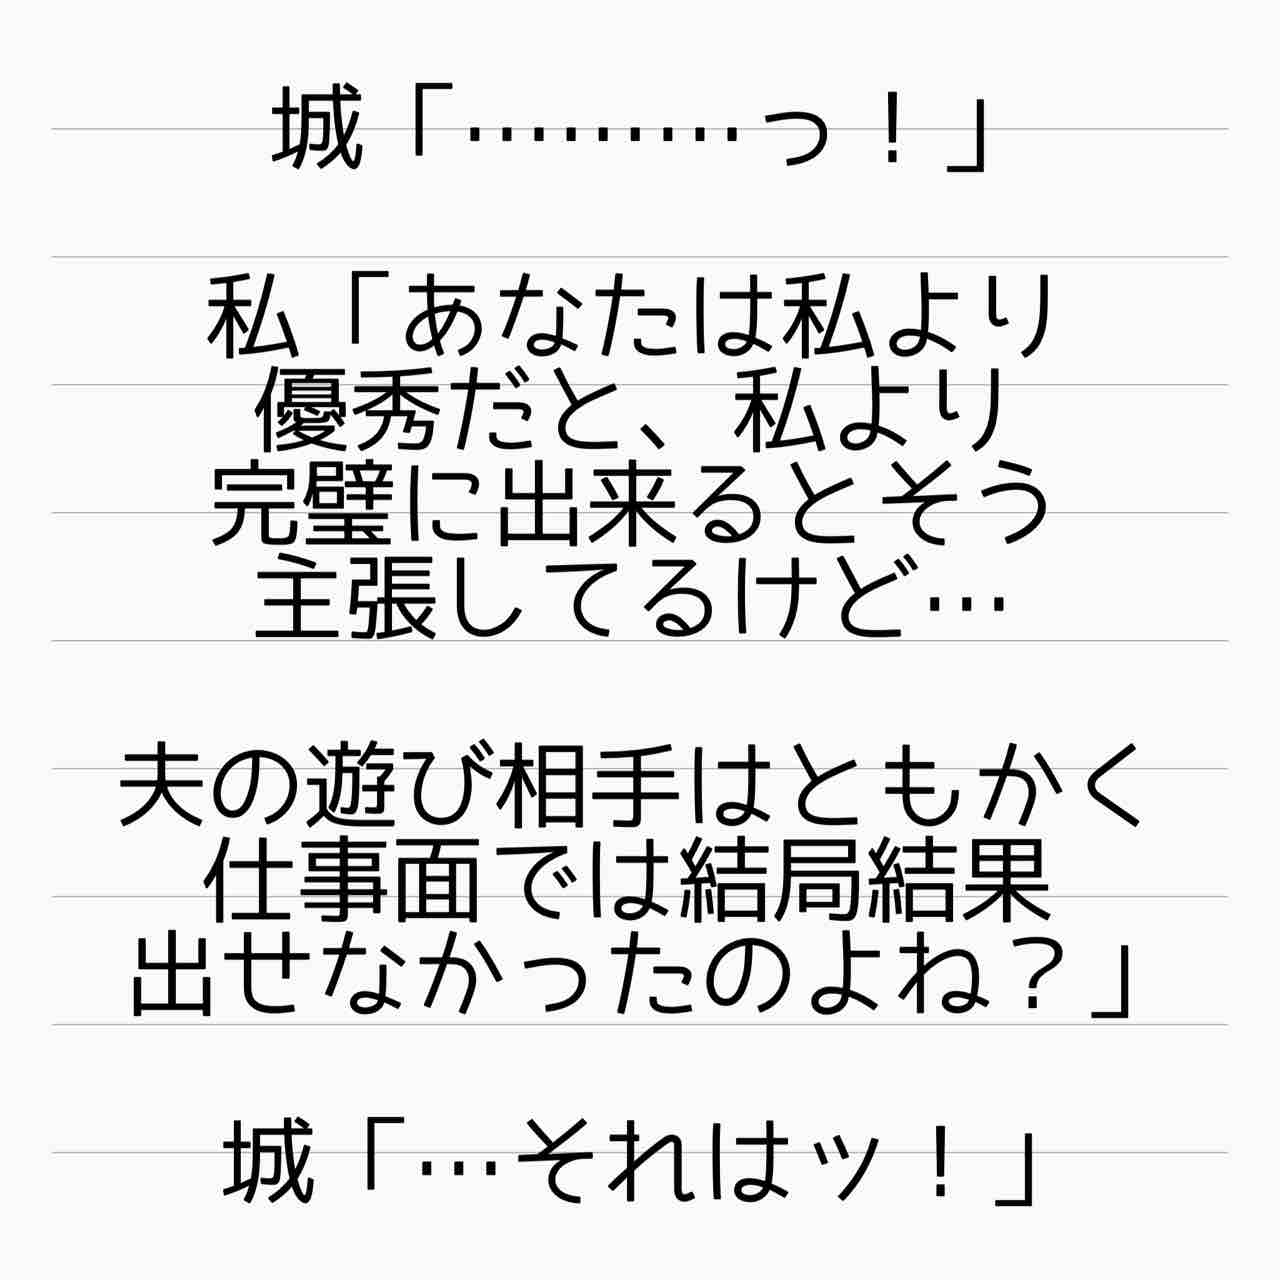 城「………っ！」
私「あなたは私より
優秀だと、私より
完璧に出来るとそう
主張してるけど…
夫の遊び相手はともかく
仕事面では結局結果
出せなかったのよね？」
城「…それはッ！」